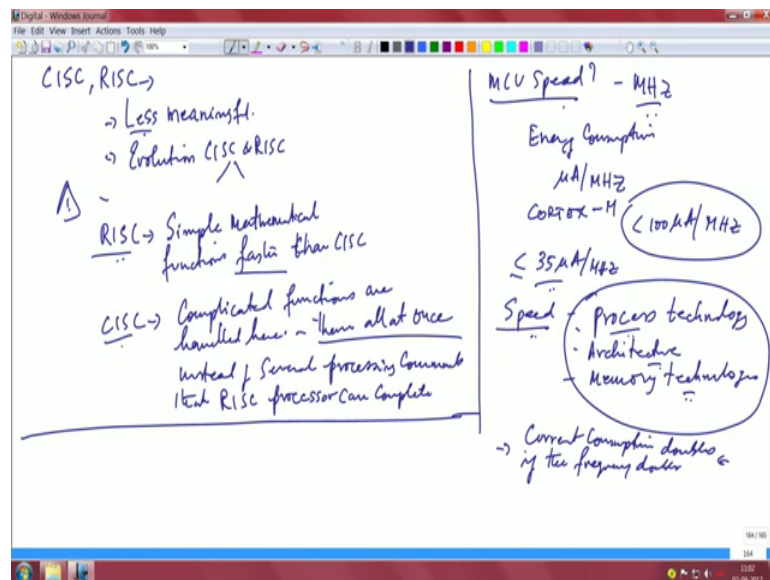 Digital - Windows Journal
File Edit View Insert Actions Tools Help
100%
CISC, RISC →
→ Less meaningful.
→ Evolution CISC & RISC
RISC → Simple Mathematical
functions faster than CISC
CISC → Complicated functions are
handled here - them all at once
instead of Several processing Commands
that RISC processor Can Complete
MCU Speed? - MHZ
Energy Consumption
µA/MHZ
CORTEX-M <100µA/MHZ
≤ 35µA/MHZ
Speed - Process technology
- Architecture
- Memory technologies
→ Current Consumption doubles
if the frequency doubles
164 / 165
164
11:02